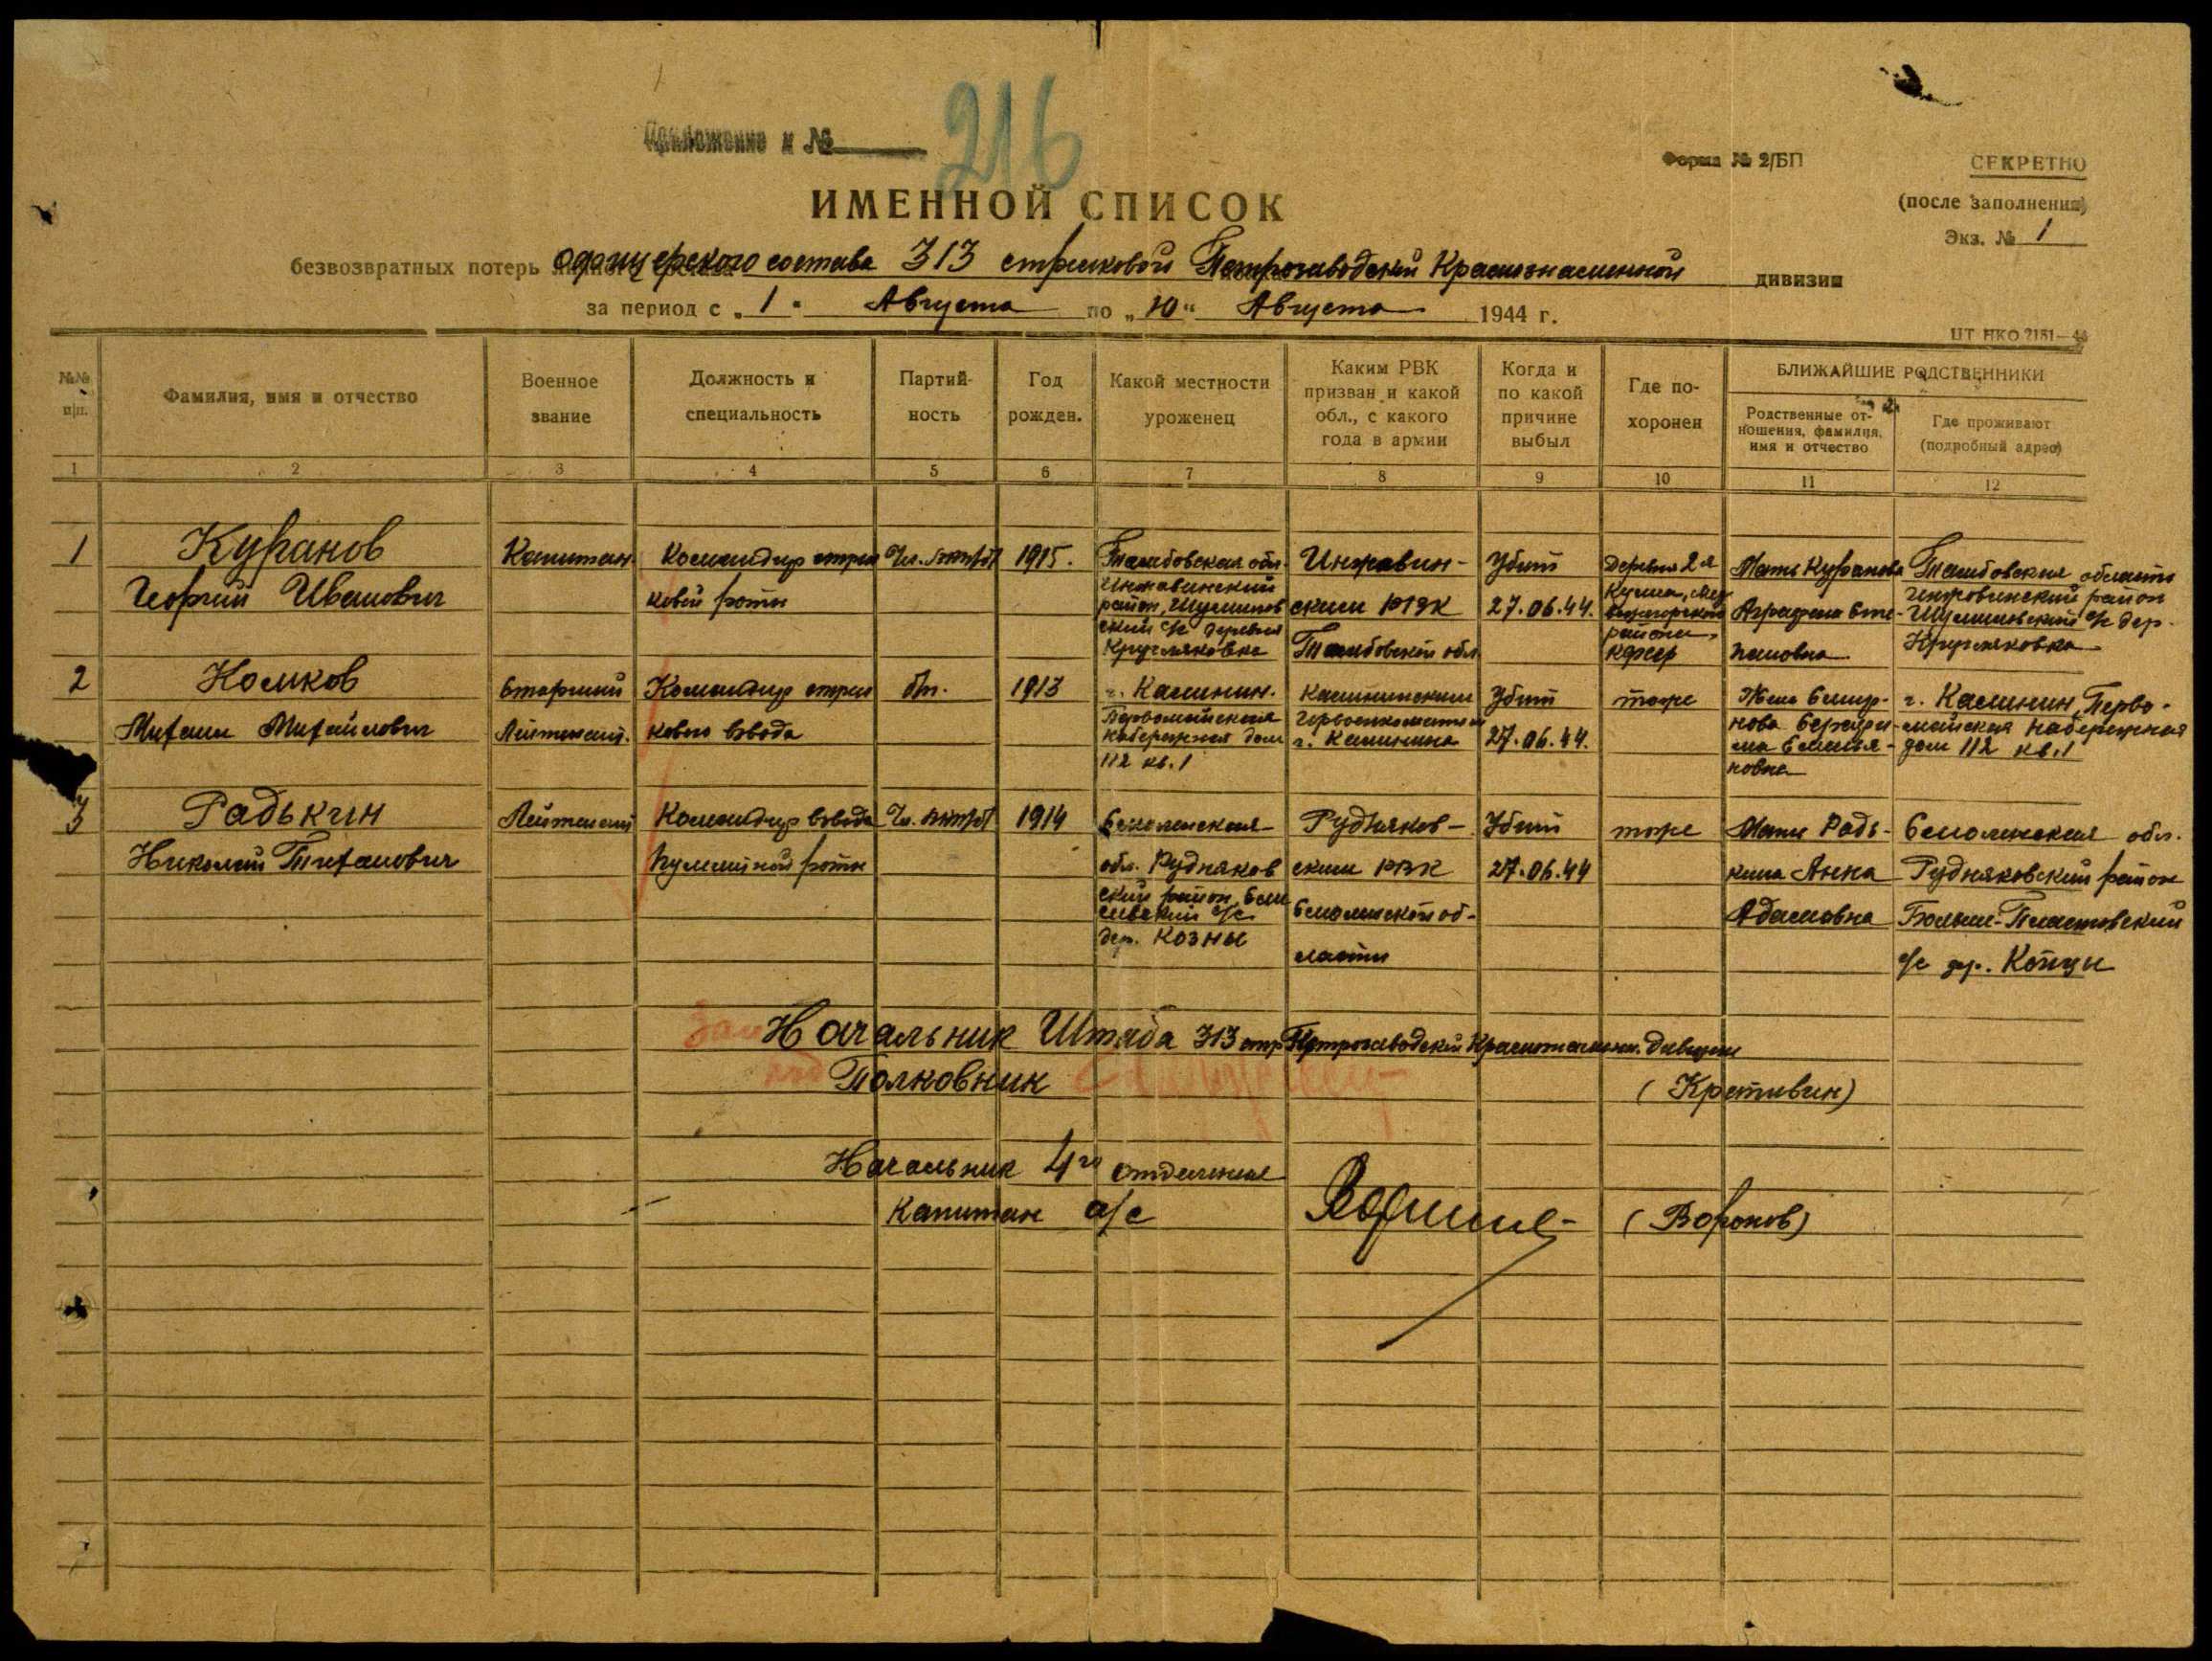 Приложение к №
216
Форма № 2/БП
СЕКРЕТНО
(после заполнения)
Экз. № 1
ИМЕННОЙ СПИСОК
безвозвратных потерь офицерского состава 313 стрелковой Петрозаводской Краснознаменной дивизии
за период с „1“ Августа по „10“ Августа 1944 г.
ЦТ НКО 2151—44
№№ п/п.
Фамилия, имя и отчество
Военное звание
Должность и специальность
Партий-ность
Год рожден.
Какой местности уроженец
Каким РВК призван и какой обл., с какого года в армии
Когда и по какой причине выбыл
Где по-хоронен
БЛИЖАЙШИЕ РОДСТВЕННИКИ
Родственные от-ношения, фамилия, имя и отчество
Где проживают (подробный адрес)
1 2 3 4 5 6 7 8 9 10 11 12
1
Куранов
Георгий Иванович
Капитан
Командир стрел
ковой роты
Чл. ВКП(б)
1915.
Тамбовская обл.
Инжавинский
район, Шумилов
ский с/с деревня
Кругляковка
Инжавин-
ским РВК
Тамбовской обл
Убит
27.06.44.
деревня 2я
Кумса, Мед
вежьегорского
района,
КФССР
Мать Куранова
Аграфена Сте-
пановна
Тамбовская область
Инжавинский район
Шумиловский с/с дер.
Кругляковка
2
Комков
Михаил Михайлович
Старший
Лейтенант.
Командир стрел
кового взвода
б/п.
1913
г. Калинин.
Первомайская
набережная дом
112 кв. 1
Калининским
Горвоенкоматом
г. Калинина
Убит
27.06.44.
тоже
Жена Смир-
нова
новна
г. Калинин, Перво-
майская набережная
дом 112 кв. 1
3
Радькин
Николай Титанович
Лейтенант
Командир взвода
пулеметной роты
Чл. ВКП(б)
1914
Смоленская
обл. Рудняков
ский район,
с/с
дер. Козны
Рудняков-
ским РВК
Смоленской об-
ласти
Убит
27.06.44
тоже
Мать Радь-
кина Анна
Адамовна
Смоленская обл.
Рудняковский район
Больше-Пластовский
с/с дер. Концы
Зам Начальник Штаба 313 стр Петрозаводской Краснознамен. дивизии
Полковник
(Кретивин)
Начальник 4го отделения
Капитан а/с
(Воронов)